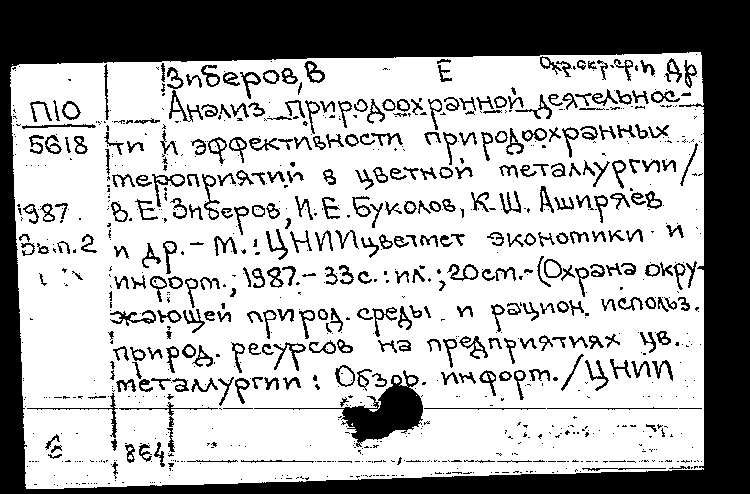 Зиберов, В Е Охр.окр.ср.и др
П10 Анализ природоохранной деятельнос-
5618 ти и эффективности природоохранных
мероприятий в цветной металлургии/
1987. В.Е.Зиберов, И.Е.Буколов, К.Ш.Аширяев
Вып.2 и др.- М.: ЦНИИцветмет экономики и
информ., 1987.- 33с.: ил.; 20см.-(Охрана окру-
жающей природ. среды и рацион. использ.
природ. ресурсов на предприятиях цв.
металлургии: Обзор. информ./ЦНИИ
864